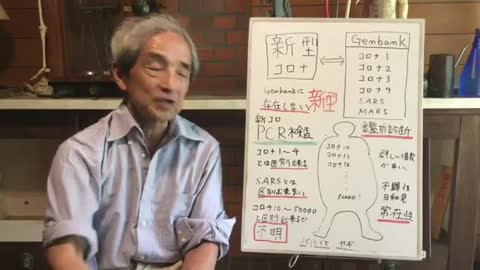 新型
コロナ
Genbank
コロナ1
コロナ2
コロナ3
コロナ4
SARS
MARS
Genbankに
存在しない
新型
新コロ
PCR検査
コロナ1〜4
とは区別出来る
SARSとは
区別出来ない
コロナ10〜50000
と区別出来るか
不明
鑑別診断
コロナ10
コロナ11
コロナ12
50000
詳しい情報
がない
不顕性
日和見
常在性